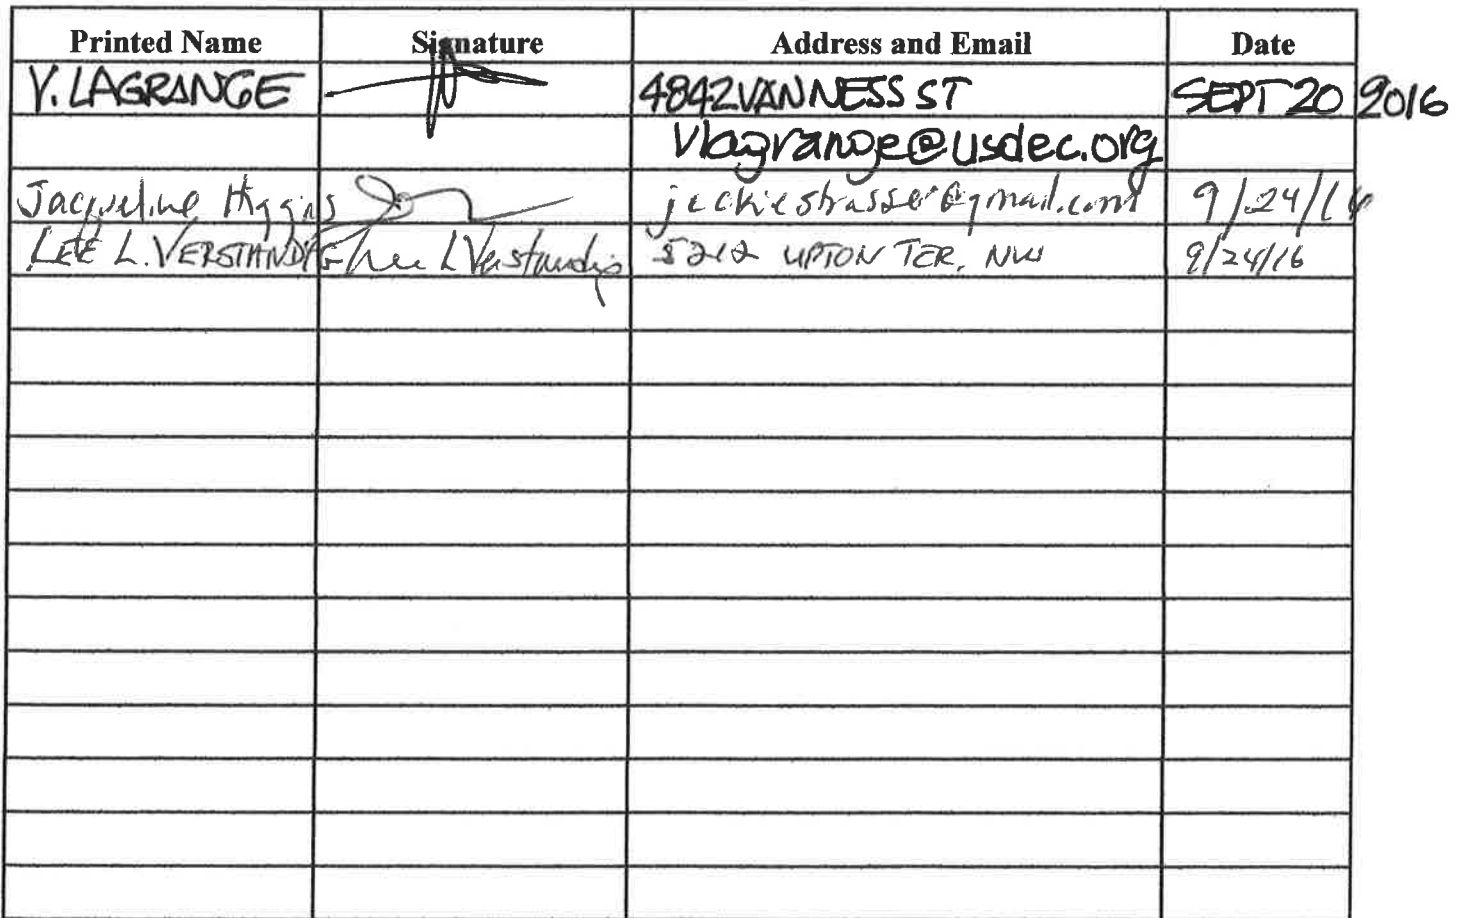 Printed Name Signature Address and Email Date
V. LAGRANGE 4842 VAN NESS ST SEPT 20 2016
vlagrange@usdec.org
Jacqueline Higgins jackiestrasser@gmail.com 9/24/16
LEE L. VERSTANDIG Lee L Verstandig 5212 UPTON TER, NW 9/24/16